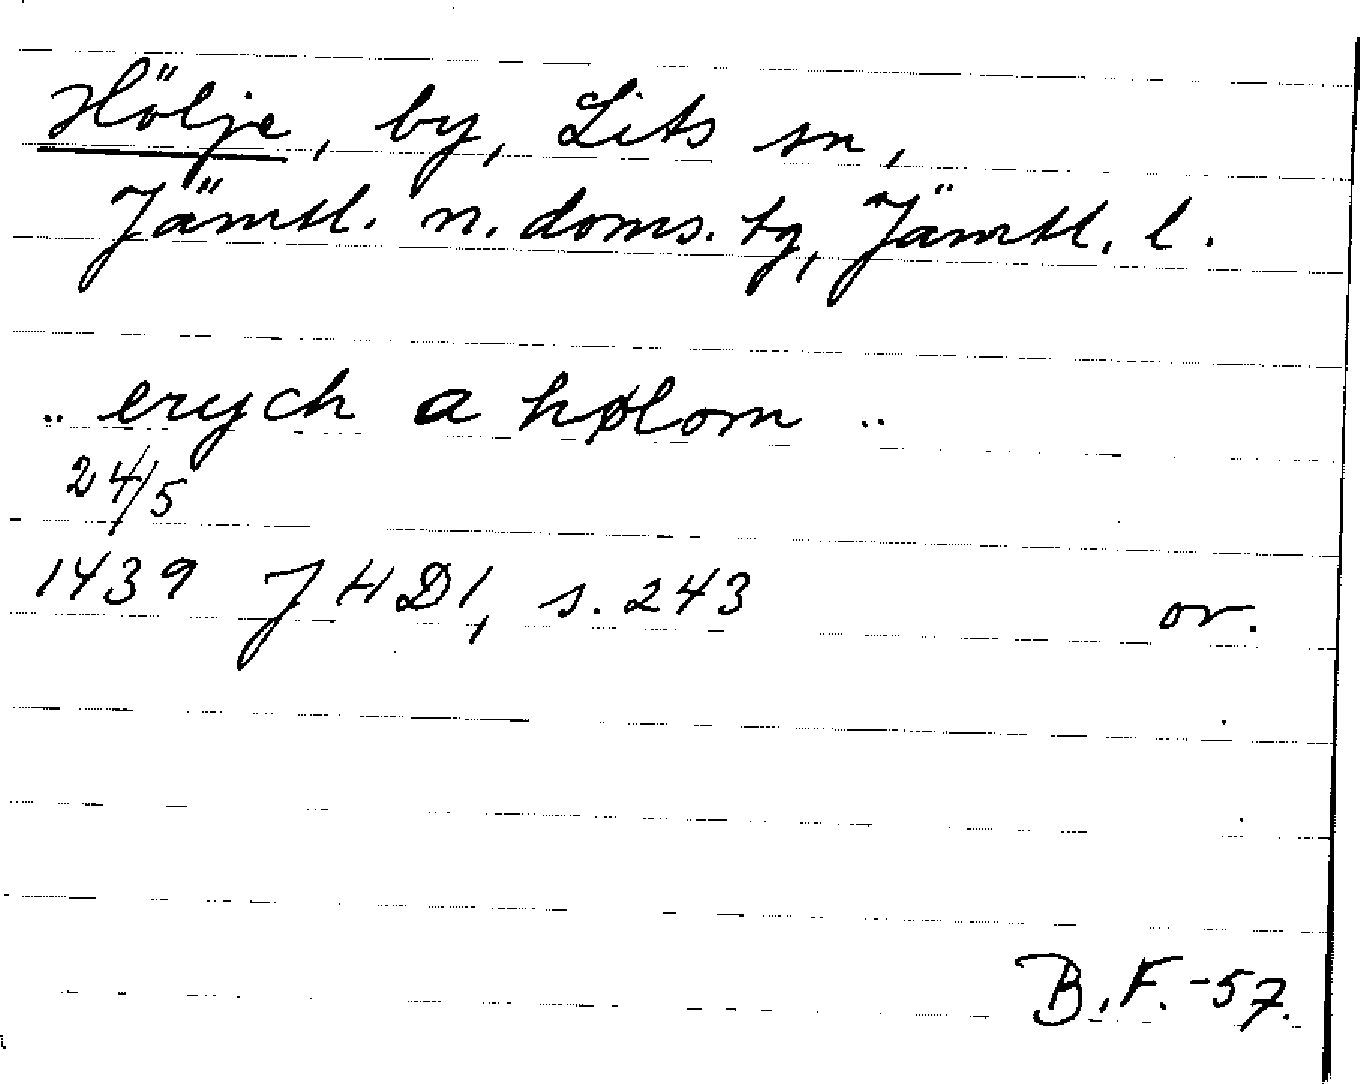 Hölje, by, Lits sn,
Jämtl. n. doms. tg, Jämtl. l.
.. erych a hølom ..
24/5
1439 JHD1, s. 243 or.
B.F.-57.